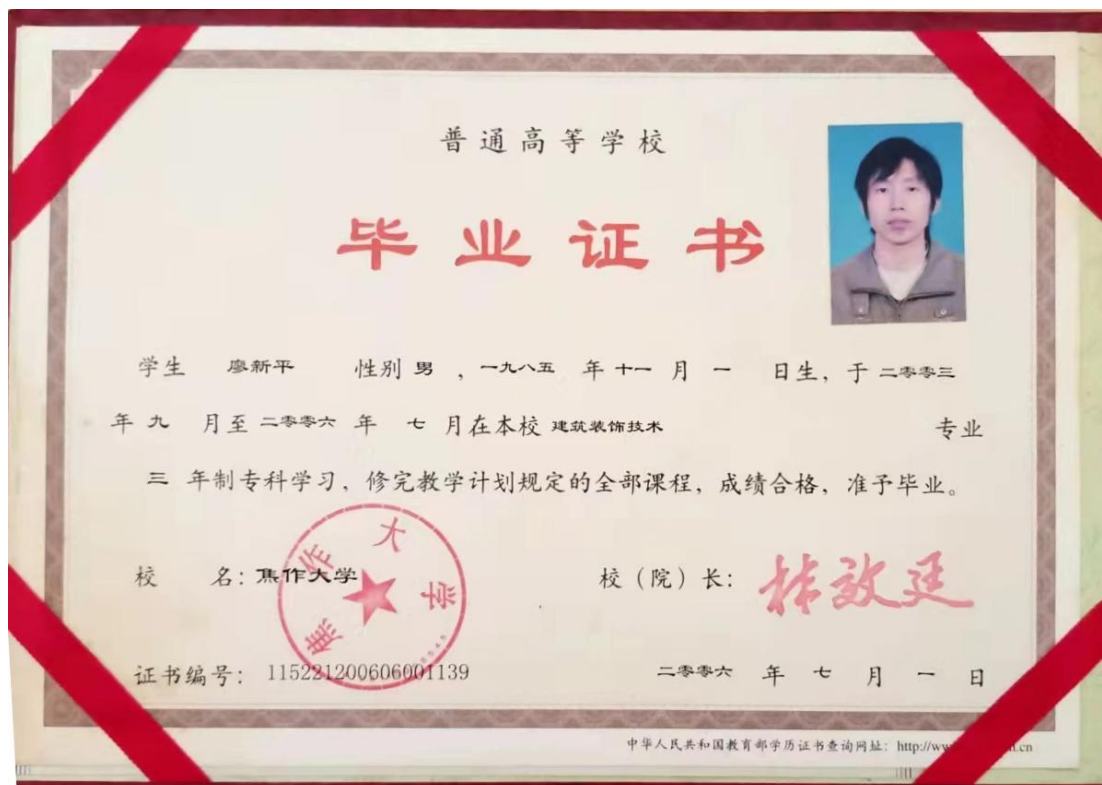 普通高等学校
毕业证书
学生 廖新平 性别 男 ，一九八五 年 十一 月 一 日生，于 二零零三
年 九 月至 二零零六 年 七 月在本校 建筑装饰技术 专业
三 年制专科学习，修完教学计划规定的全部课程，成绩合格，准予毕业。
校 名：焦作大学 校（院）长：
焦作大学
证书编号：115221200606001139 二零零六 年 七 月 一 日
中华人民共和国教育部学历证书查询网址：http://ww